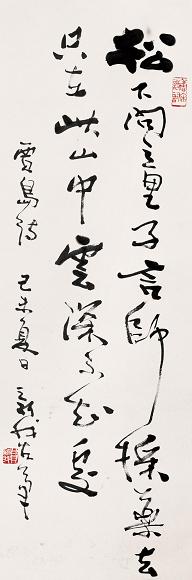 松下問童子言師採藥去
只在此山中雲深不知處
賈島詩 己未夏日 新我左筆